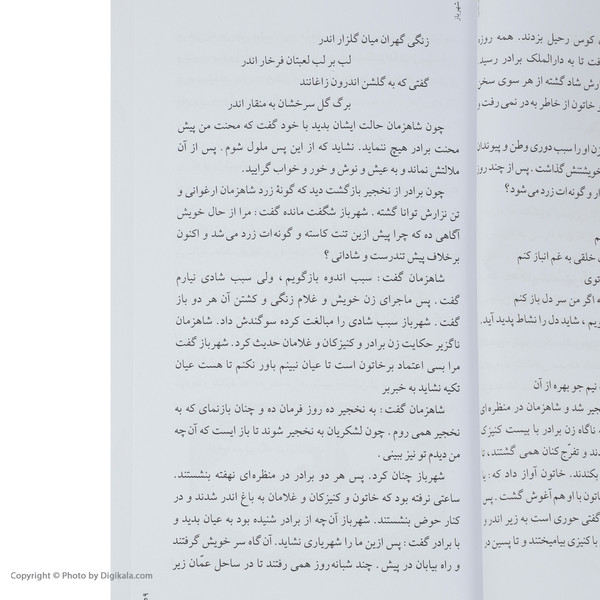 شهرباز
زنگی گهران میان گلزار اندر
لب بر لب لعبتان فرخار اندر
گفتی که به گلشن اندرون زاغانند
برگ گل سرخشان به منقار اندر
چون شاهزمان حالت ایشان بدید با خود گفت که محنت من پیش
محنت برادر هیچ ننماید. نشاید که از این پس ملول شوم. پس از آن
ملالتش نماند و به عیش و نوش و خور و خواب گرایید.
چون برادر از نخجیر بازگشت دید که گونهٔ زرد شاهزمان ارغوانی و
تن نزارش توانا گشته. شهرباز شگفت مانده گفت: مرا از حال خویش
آگاهی ده که چرا پیش ازین تنت کاسته و گونه‌ات زرد می‌شد و اکنون
برخلاف پیش تندرست و شادانی؟
شاهزمان گفت: سبب اندوه بازگویم، ولی سبب شادی نیارم
گفت. پس ماجرای زن خویش و غلام زنگی و کشتن آن هر دو باز
گفت. شهرباز سبب شادی را مبالغت کرده سوگندش داد. شاهزمان
ناگزیر حکایت زن برادر و کنیزکان و غلامان حدیث کرد. شهرباز گفت
مرا بسی اعتماد برخاتون است تا عیان نبینم باور نکنم تا هست عیان
تکیه نشاید به خبربر
شاهزمان گفت: به نخجیر ده روز فرمان ده و چنان بازنمای که به
نخجیر همی روم. چون لشکریان به نخجیر شوند تا باز ایست که آن‌چه
من دیدم تو نیز ببینی.
شهرباز چنان کرد. پس هر دو برادر در منظره‌ای نهفته بنشستند.
ساعتی نرفته بود که خاتون و کنیزکان و غلامان به باغ اندر شدند و در
کنار حوض بنشستند. شهرباز آن‌چه از برادر شنیده بود به عیان بدید و
با برادر گفت: پس ازین ما را شهریاری نشاید. آن‌گاه سر خویش گرفتند
و راه بیابان در پیش. چند شبانه‌روز همی رفتند تا در ساحل عمّان زیر
کوس رحیل بزدند. همه روز
فت تا به دارالملک برادر رسید
ارش شاد گشته از هر سوی سخن
خاتون از خاطر به در نمی رفت و
زن او را سبب دوری وطن و پیوندان
خویشتنش گذاشت. پس از چند روز
ار و گونه‌ات زرد می‌شود؟
خلقی به غم انباز کنم
توی
ه اگر من سر دل باز کنم
یم، شاید دل را نشاط پدید آید.
نیم جو بهره از آن
جیر شد و شاهزمان در منظره‌ای
ه ناگاه زن برادر با بیست کنیزک
دند و تفرّج‌کنان همی گشتند، تا
بکندند. خاتون آواز داد که: یا
خاتون با او هم آغوش گشت. پس
گفتی حوری است به زیر اندر و
با کنیزی بیامیختند و تا پسین در
Copyright © Photo by Digikala.com